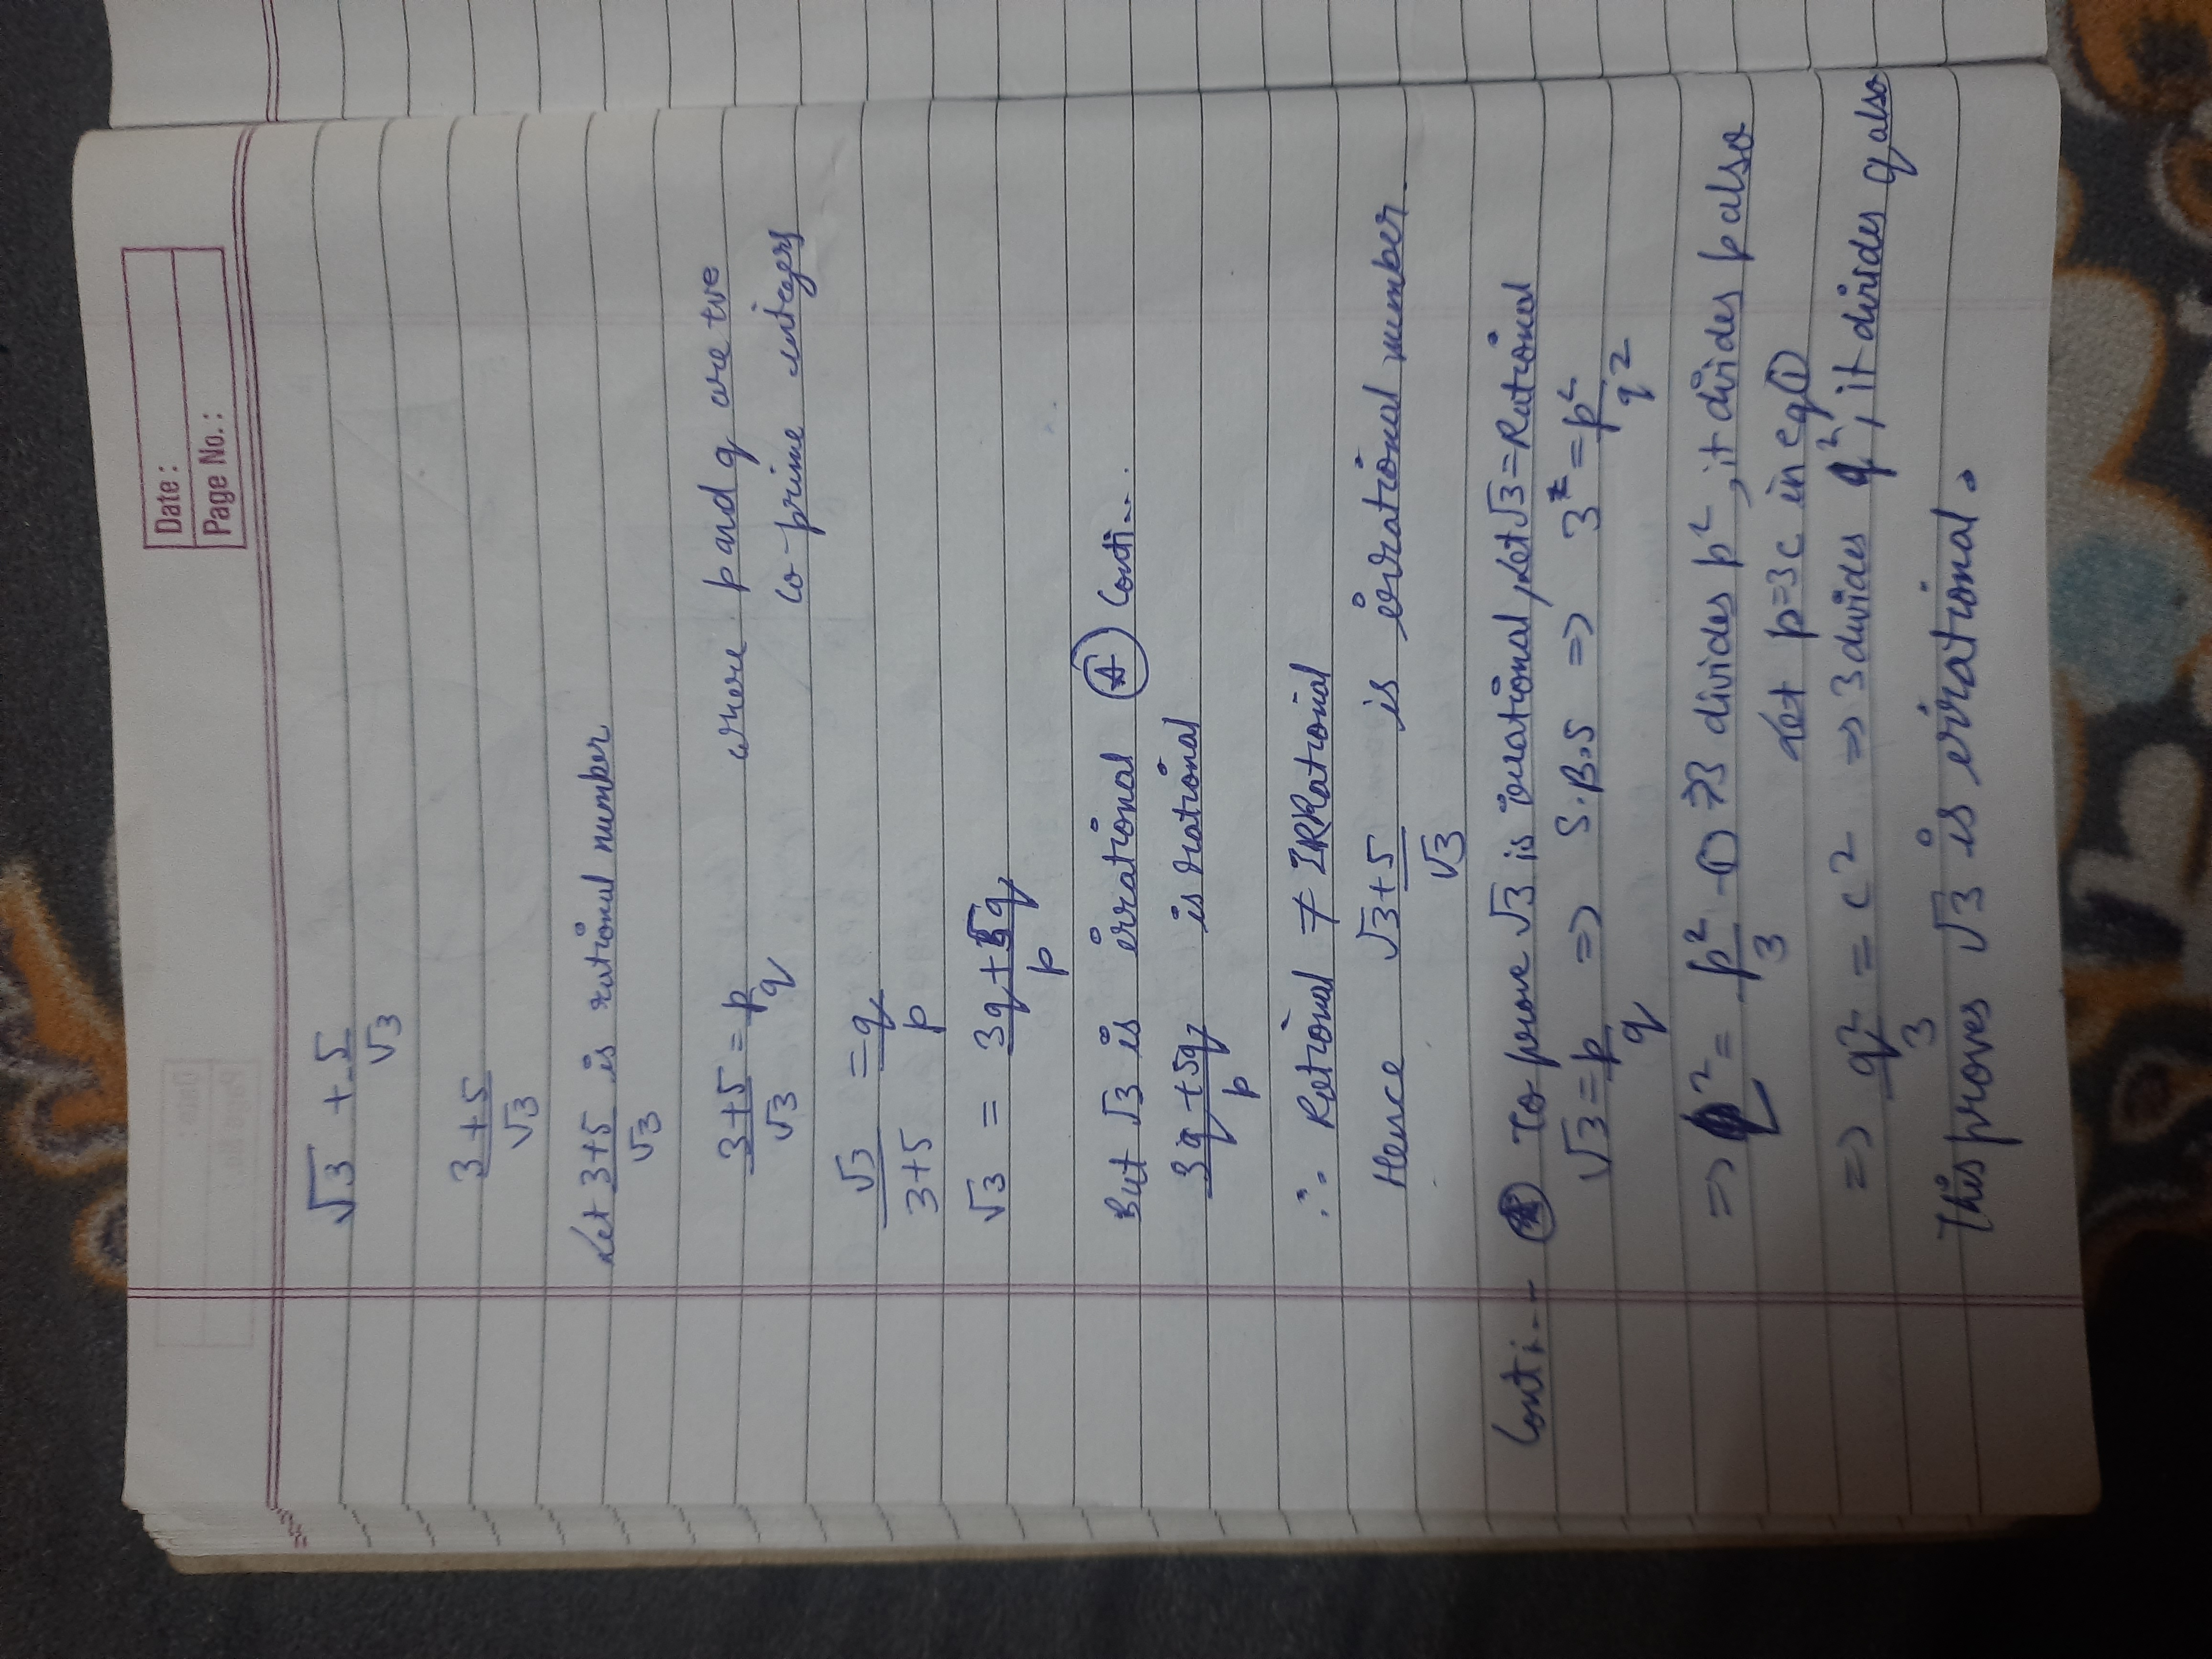 Date :
Page No. :
√3 + 5/√3
3+5/√3
Let 3+5/√3 is rational number
3+5/√3 = p/q where p and q are two
co-prime integers
√3/3+5 = q/p
√3 = 3q+5q/p
But √3 is irrational (A) Conti...
3q+5q/p is rational
∴ Rational ≠ IRRational
Hence √3+5/√3 is irrational number.
Conti... To prove √3 is irrational, Let √3 = Rational
√3 = p/q => S.B.S => 3 = p²/q²
=> q² = p²/3 -① => 3 divides p², it divides p also
Let p=3c in eq①
=> q²/3 = c² => 3 divides q², it divides q also
This proves √3 is irrational.